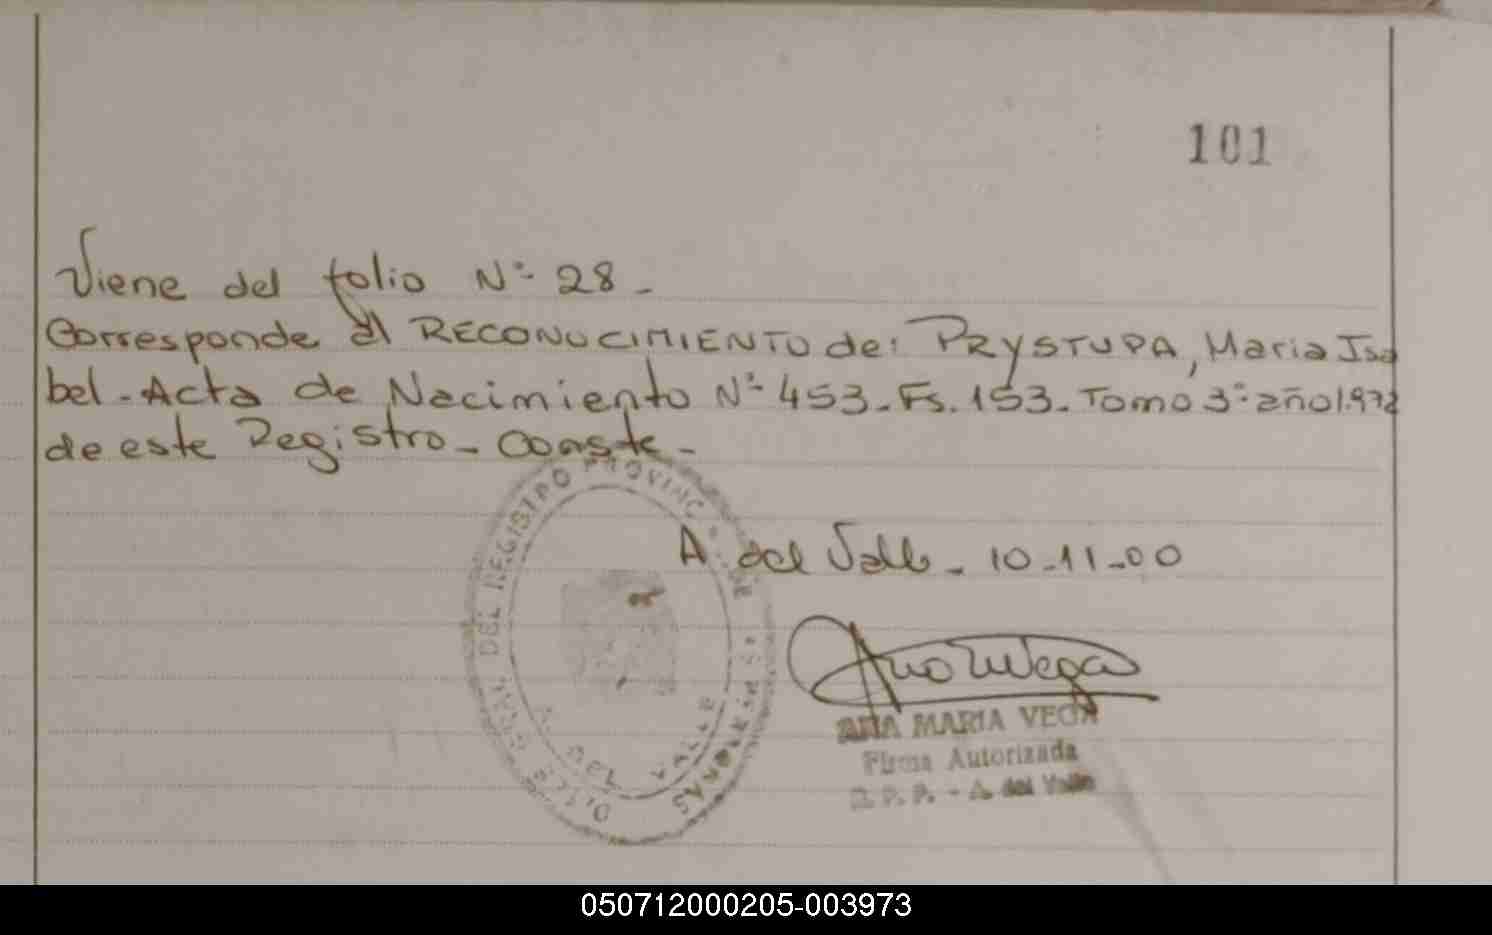 101
Viene del folio Nº 28 -
Corresponde al RECONOCIMIENTO de: PRYSTUPA, Maria Isa
bel - Acta de Nacimiento Nº 453 - Fs. 153 - Tomo 3º año 1.972
de este Registro - Conste -
A del Valle - 10-11-00
DEL REGISTRO PROVINC. DE LAS PERSONAS
A. DEL VALLE
Ana M Vega
ANA MARIA VEGA
Firma Autorizada
R. P. P. - A. del Valle
050712000205-003973